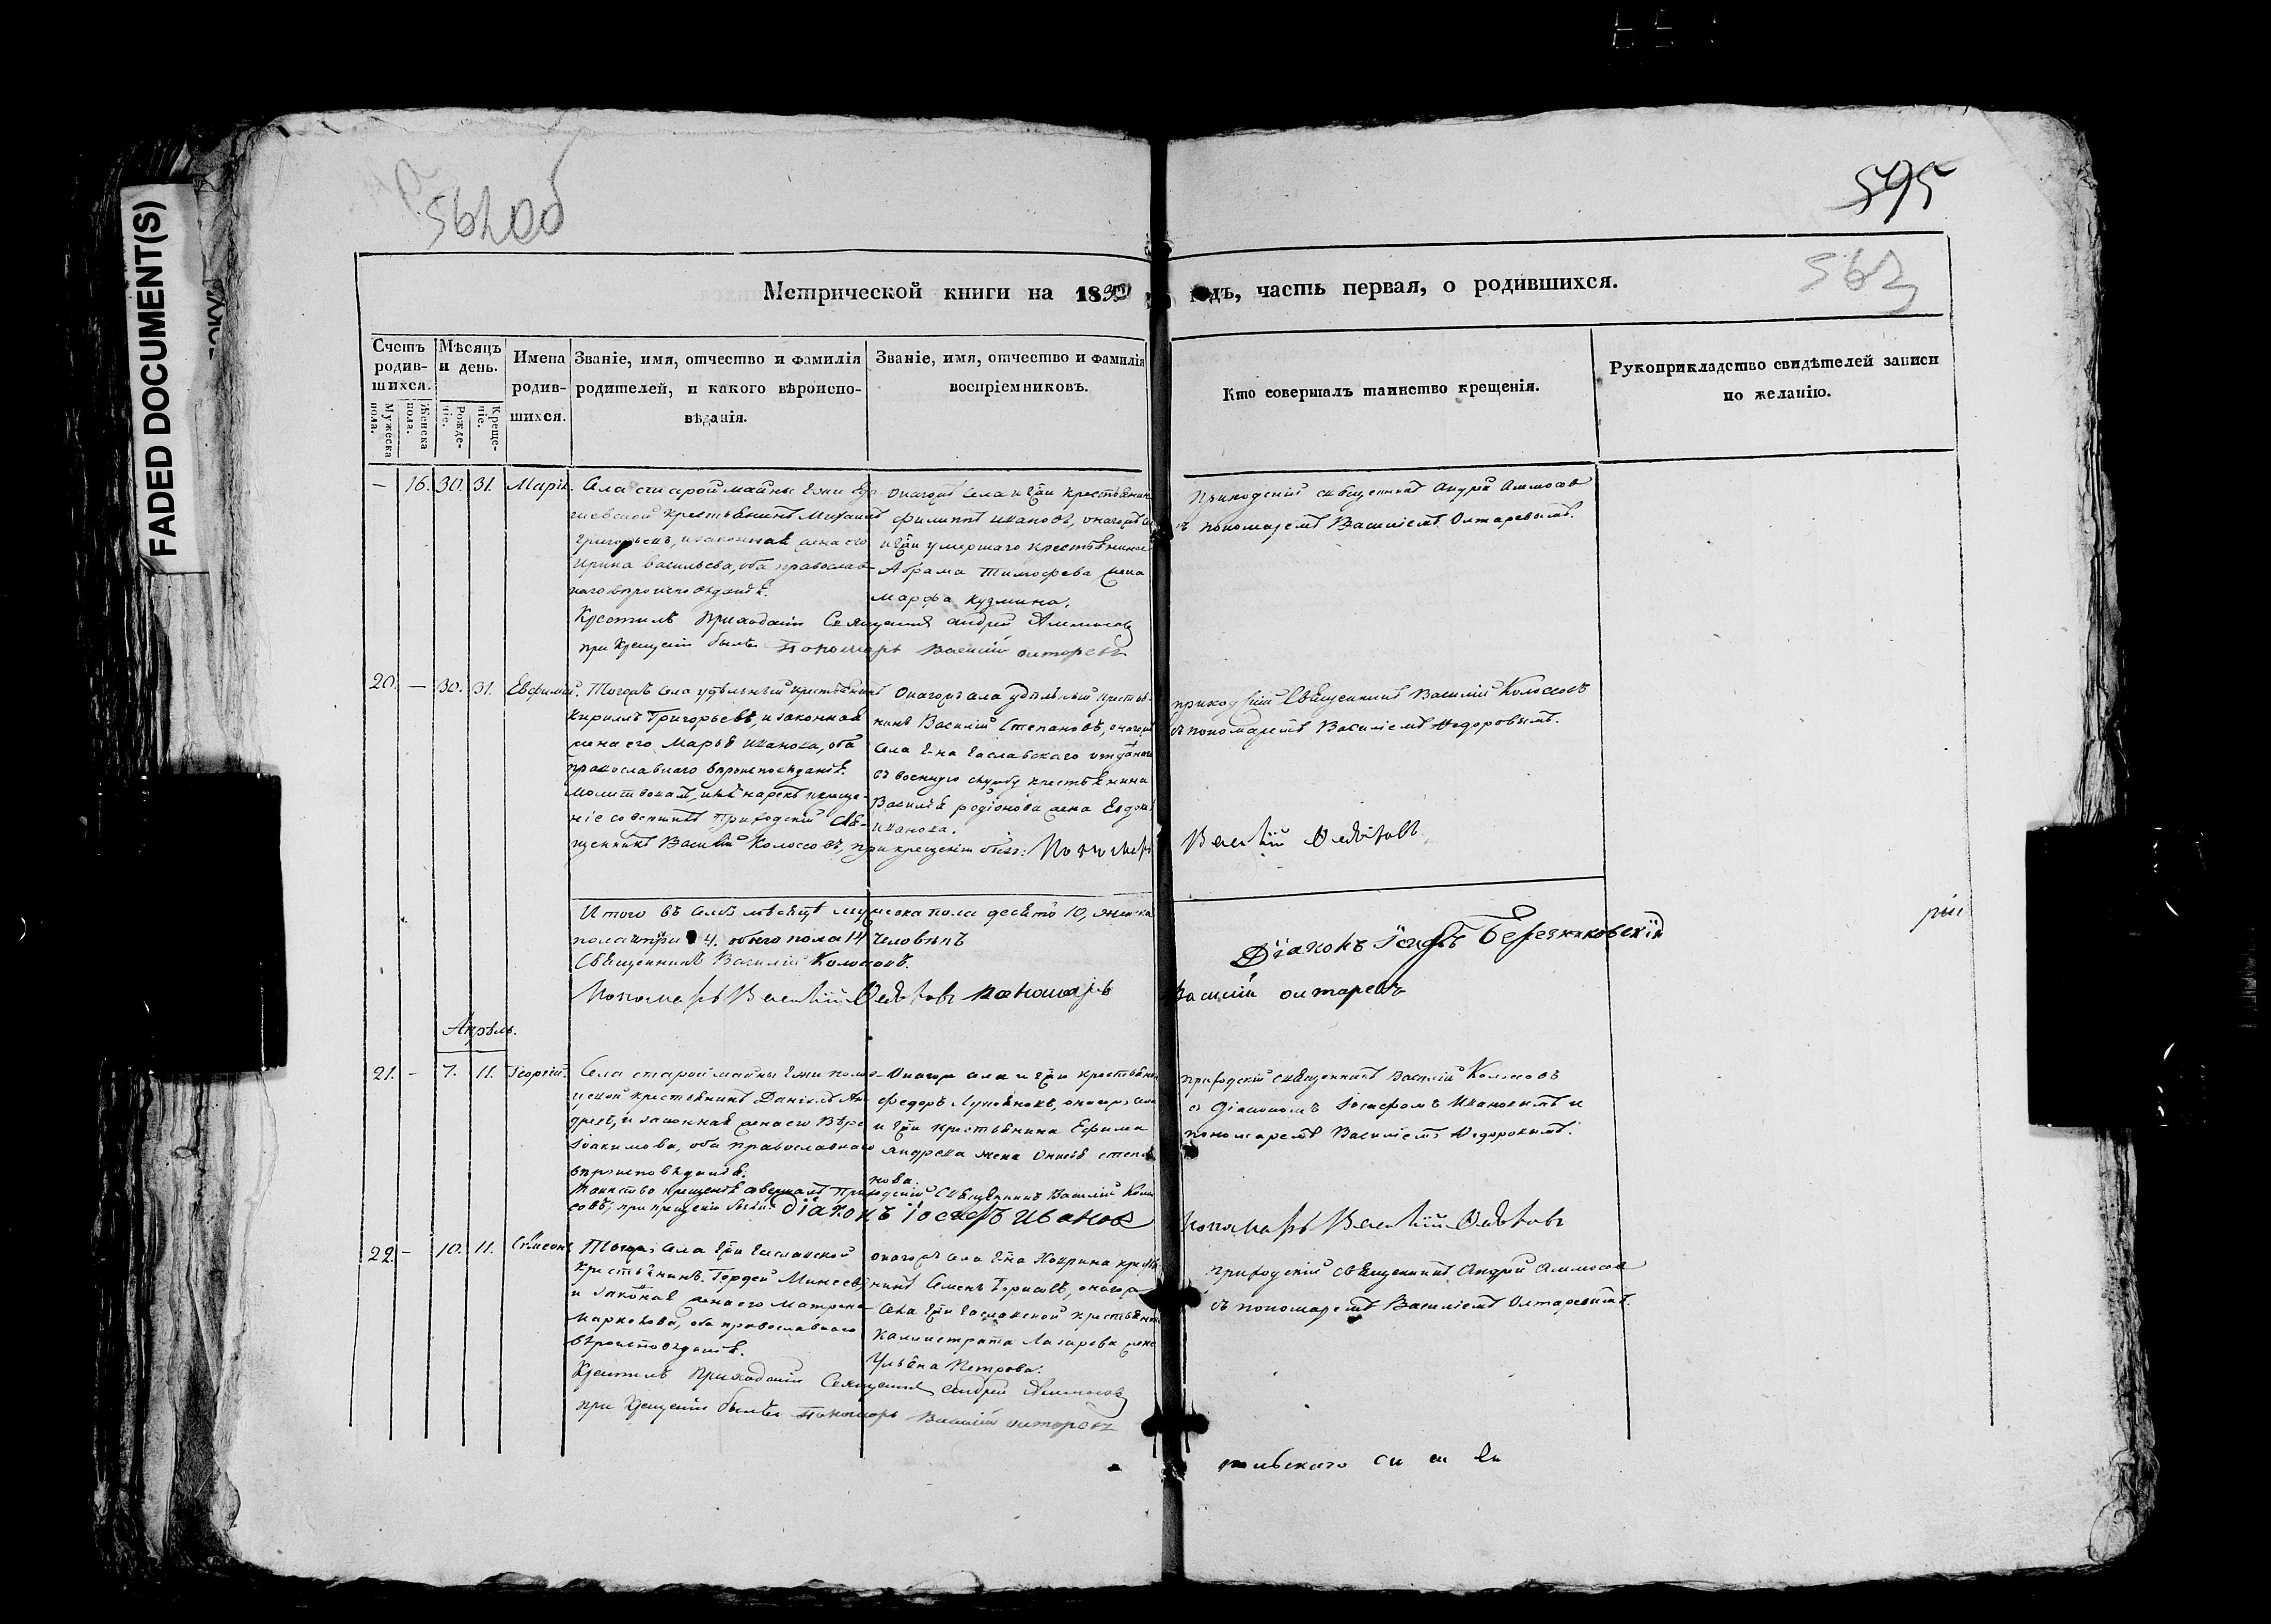 FADED DOCUMENT(S)
562об
595
563
Метрической книги на 18 годъ, часть первая, о родившихся.
Счетъ родившихся.
Мужеска пола.
Женска пола.
Мѣсяцъ и день.
Рожденіе.
Крещеніе.
Имена родившихся.
Званіе, имя, отчество и фамилія родителей, и какого вѣроисповѣданія.
Званіе, имя, отчество и фамилія воспріемниковъ.
Кто совершалъ таинство крещенія.
Рукоприкладство свидѣтелей записи по желанію.
— 16. 30. 31. Марія.
Села старой майны Г-жи
крестьянинъ Михаилъ
Григорьевъ, и законная жена его
Ирина Васильева, оба православ-
наго вѣроисповѣданія.
Онагожъ села и Г-жи крестьянинъ
Филиппъ Ивановъ, онагожъ
и Г-жи умершаго крестьянина
Абрама Тимофеева жена
Марфа Кузмина.
Приходскій священникъ Андрей Аммосовъ
съ пономаремъ Василіемъ Олтаревымъ.
Крестилъ приходскій Священникъ Андрей Аммосовъ
при крещеніи былъ Пономарь Василій Олтаревъ
20. — 30. 31. Евфимій.
Тогожъ села удѣльный крестьянинъ
Кириллъ Григорьевъ, и законная
жена его Марья Иванова, оба
православнаго вѣроисповѣданія.
Молитвовалъ, имя нарекъ и креще-
ніе совершилъ приходскій Свя-
щенникъ Василій Колосовъ, при крещеніи былъ: Пономарь
Онагожъ села удѣльный крестья-
нинъ Василій Степановъ, онагожъ
села Г-на отданаго
въ военную службу крестьянина
Василія Родіонова жена Евдок
Иванова.
приходскій Священникъ Василій Колосовъ
съ пономаремъ Василіемъ Федоровымъ.
Василій Федоровъ
Итого въ семъ мѣсяцѣ мужеска пола десять 10, женска
пола четыри 4. обоего пола 14 человѣкъ
Священникъ Василій Колосовъ.
Діаконъ Березняковскій
Пономарь Василій Федоровъ Пономарь Василій Олтаревъ
Апрѣль.
21. — 7. 11. Георгій.
Села старой майны Г-жи
крестьянинъ Даніилъ Ан-
дреевъ, и законная жена его Вѣра
Іоакимова, оба православнаго
вѣроисповѣданія.
Онагожъ села и Г-жи крестьянинъ
Федоръ онагожъ села
и Г-жи крестьянина Ефима
Андреева жена степа
нова.
приходскій священникъ Василій Колосовъ
съ Діакономъ Іосифомъ Ивановымъ и
пономаремъ Василіемъ Федоровымъ.
Таинство крещенія совершалъ приходскій Священникъ Василій Коло
совъ; при крещеніи были: Діаконъ Іосифъ Ивановъ Пономарь Василій Федоровъ
22. — 10. 11. Сѵмеонъ
Тогожъ села Г-жи
крестьянинъ Гордей Минеевъ,
и законная жена его Матрена
Маркелова, оба православнаго
вѣроисповѣданія.
онагожъ села Г-на
нинъ Семенъ Борисовъ, онагожъ
села Г-жи крестьянина
Каллистрата Лазарева жена
Ульяна Петрова.
приходскій священникъ Андрей Аммосовъ
съ пономаремъ Василіемъ Олтаревымъ.
Крестилъ приходскій Священникъ Андрей Аммосовъ
при крещеніи былъ Пономарь Василій Олтаревъ